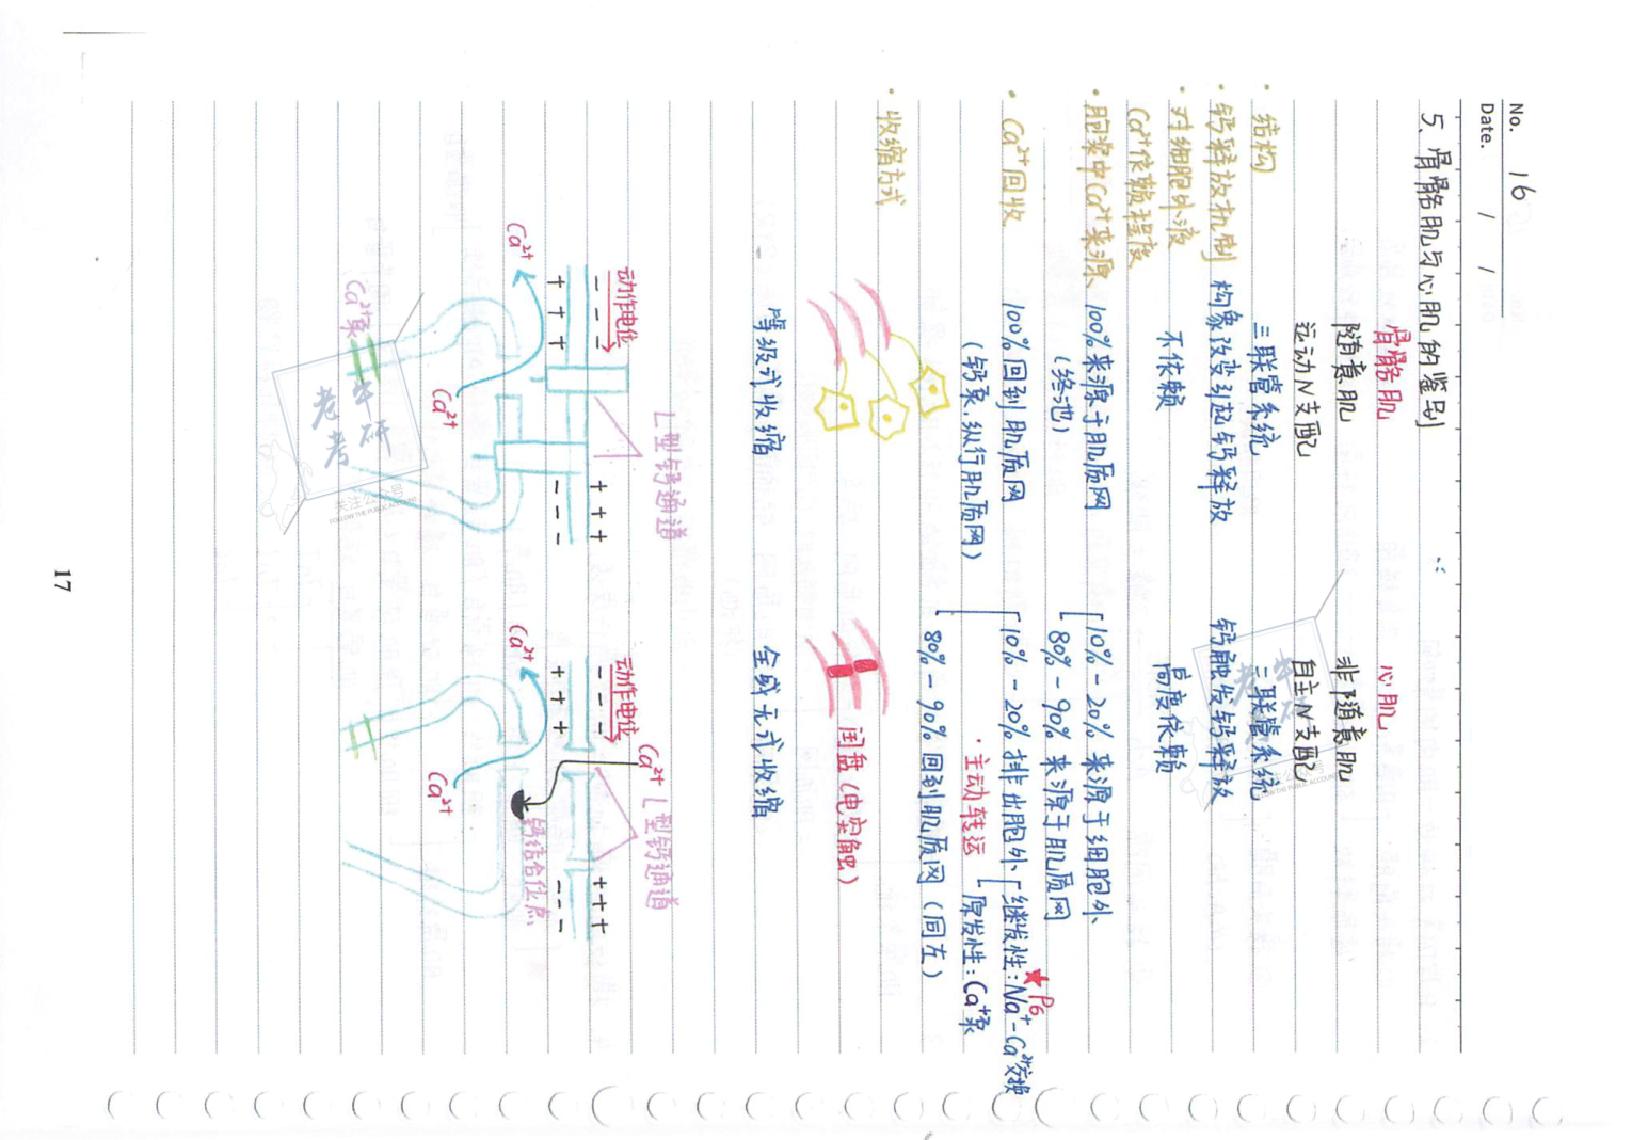 No. 16
Date. / /
5、骨骼肌与心肌的鉴别
骨骼肌 心肌
随意肌 非随意肌
运动N支配 自主N支配
· 结构 三联管系统 二联管系统
· 钙释放机制 构象改变引起钙释放 钙触发钙释放
· 对细胞外液 不依赖 高度依赖
Ca²⁺依赖程度
· 胞浆中Ca²⁺来源 100%来源于肌质网 10%-20% 来源于细胞外
(终池) 80%-90% 来源于肌质网
★P6
· Ca²⁺回收 100%回到肌质网 10%-20%排出胞外 继发性:Na⁺-Ca²⁺交换
(钙泵,纵行肌质网) ·主动转运 原发性:Ca⁺泵
80%-90%回到肌质网(同左)
· 收缩方式
闰盘(电突触)
等级式收缩 全或无式收缩
L型钙通道 Ca²⁺ L型钙通道
动作电位 动作电位
- - - + + + - - - + + +
+ + + - - - + + + - - -
Ca²⁺ Ca²⁺ 钙结合位点
Ca²⁺ Ca²⁺
Ca²⁺泵
老牛考研
关注公众号
FOLLOW THE PUBLIC ACCOUNT
17